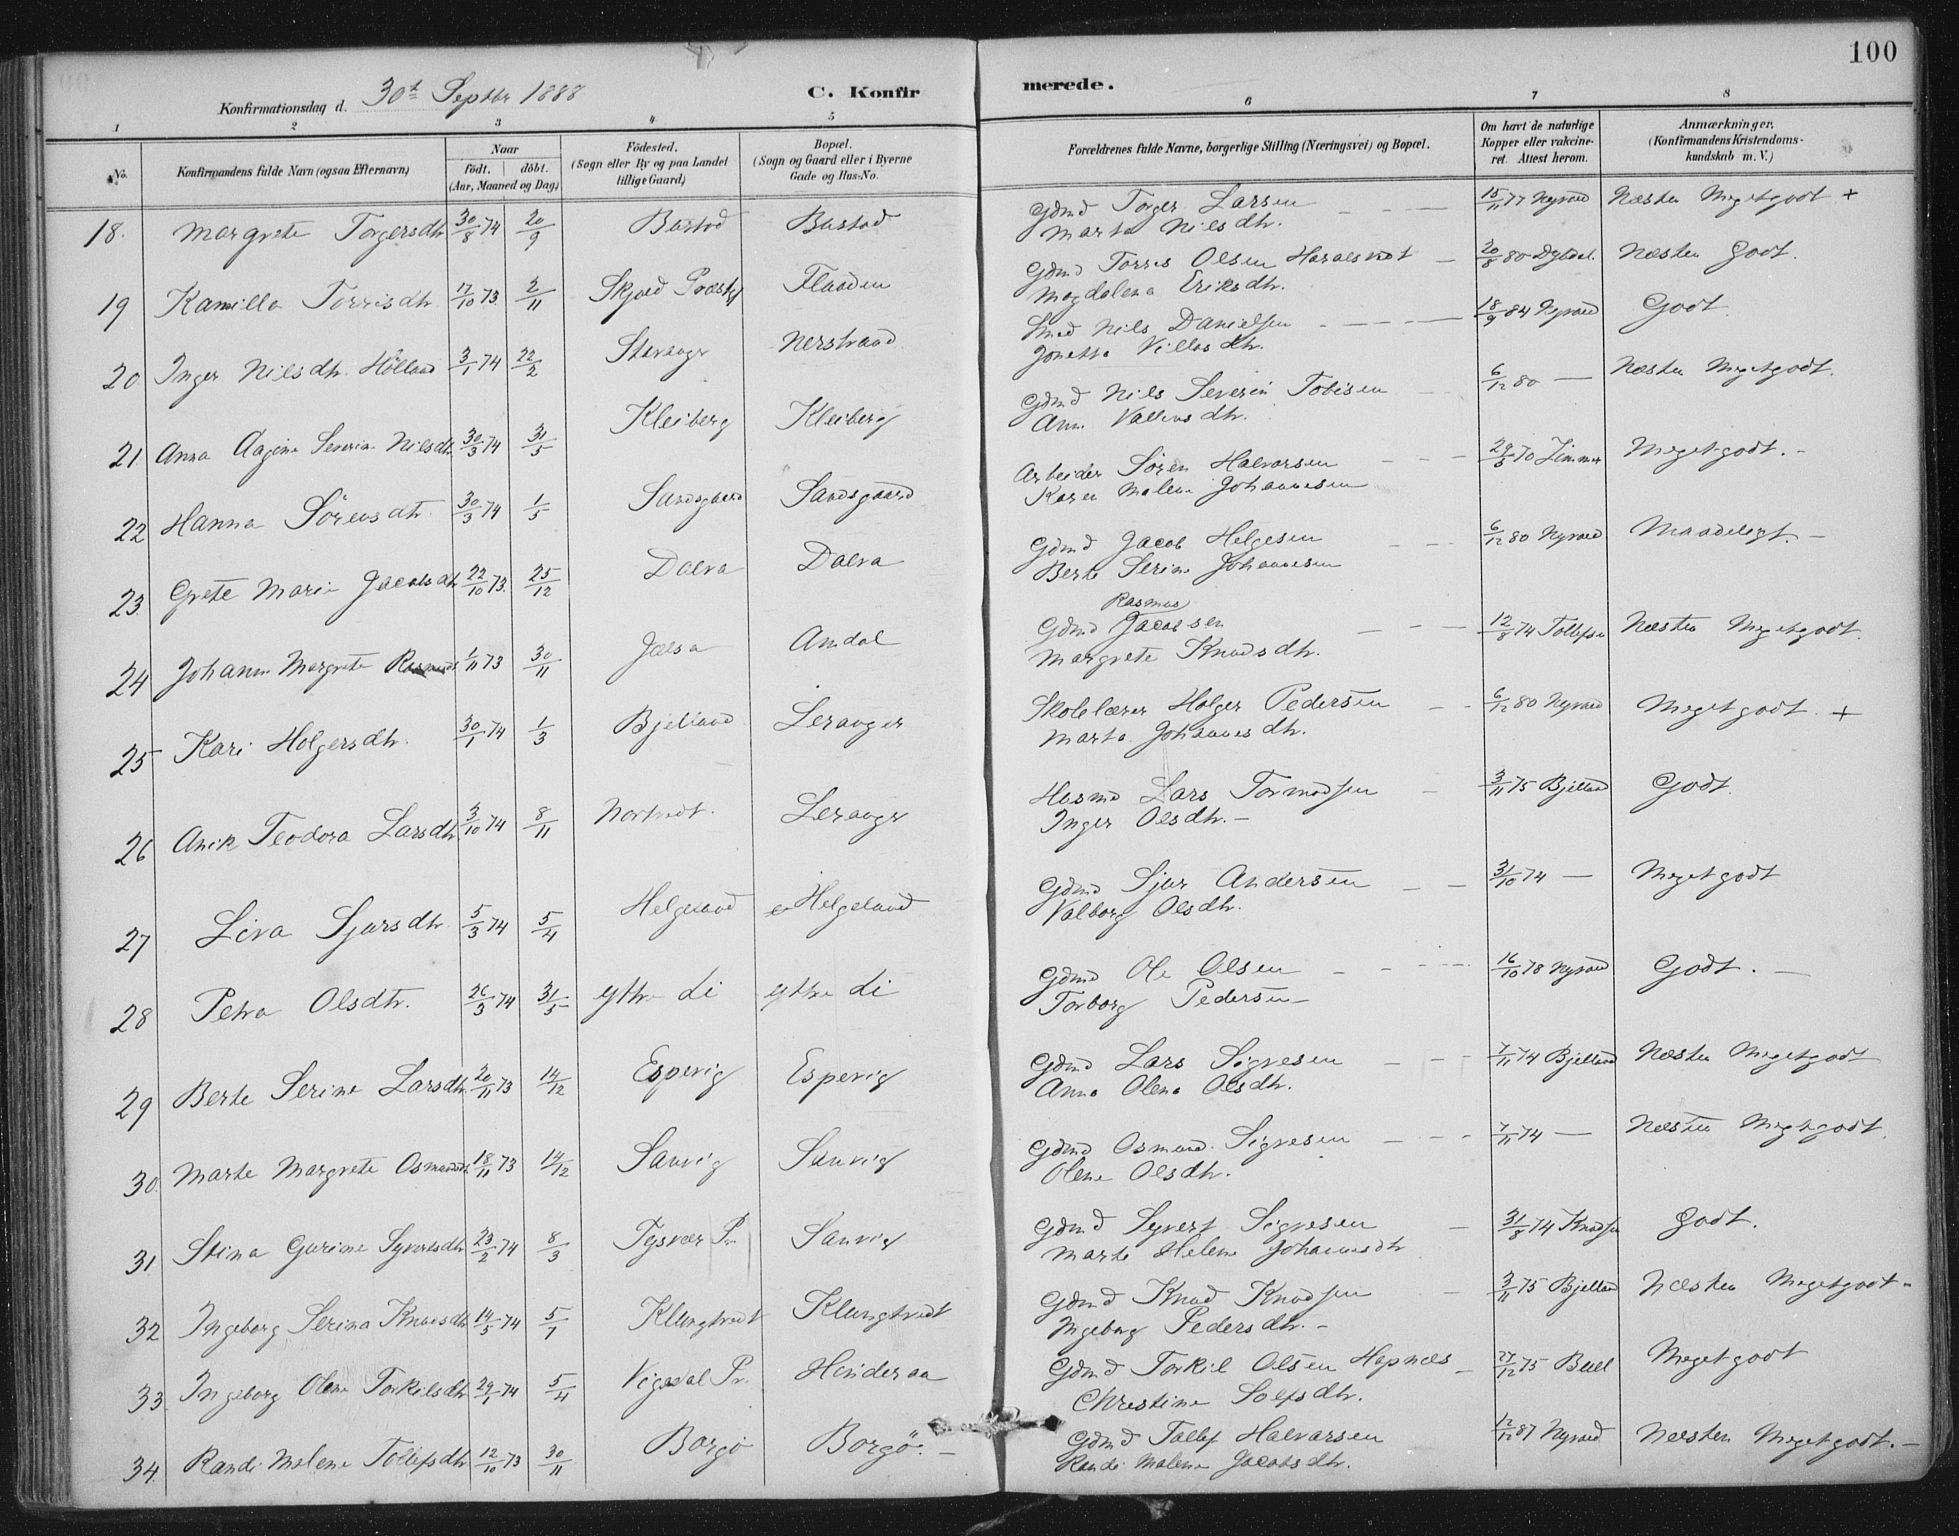 100
Konfirmationsdag d. 30t Septbr 1888 C. Konfirmerede.
1 2 3 4 5 6 7 8
No. Konfirmandens fulde Navn (ogsaa Efternavn) Naar født. døbt. (Aar, Maaned og Dag) Fødested. (Sogn eller By og paa Landet tillige Gaard) Bopæl. (Sogn og Gaard eller i Byerne Gade og Hus-No. Forældrenes fulde Navne, borgerlige Stilling (Næringsvei) og Bopæl. Om havt de naturlige Kopper eller vakcineret. Attest herom. Anmærkninger. (Konfirmandens Kristendomskundskab m. V.)
18. Margrete Torgersdtr 30/8 74 20/9 Bustad Bustad Gdmd Torger Larsen 15/11 77 Nyvold Næsten Megetgodt +
Marta Nilsdtr.
19 Kamilla Torrisdtr. 17/10 73. 2/11 Skjold Præstgj Flaaden Gdmd Torris Olsen 20/8 80 Næsten Godt.
Magdalena Eriksdtr.
20 Inger Nilsdtr. Hølland 3/1 74 22/2 Stavanger Nerstrand Smed Nils Danielsen 18/9 84 Nyvold Godt.
Jonetta
21. Anna Aagine Severine Nilsdtr 30/3 74 31/5 Kleiberg Kleiberg Gdmd Nils Severin Tobisen 6/12 80 — Næsten Megetgodt.
Ann
22 Hanna Sörensdtr. 30/3 74 1/5 Sandsgaard Sandsgaard Arbeider Sören Halvorsen Megetgodt. -
Karen Malene Johannesen
23. Grete Marie Jacobsdtr 22/10 73. 25/12 Dalva Dalva Gdmd Jacob Helgesen 6/12 80 Nyvold Maadeligt. -
Berte Serine Johannesen
24 Johanne Margrete Rasmusdtr. 1/11 73 30/11 Jælsa Amdal Gdmd Rasmus Jacobsen 12/8 74 Tollefsen Næsten Megetgodt.
Margrete Knudsdtr.
25 Kari Holgersdtr. 30/1 74 1/3 Bjelland Leranger Skolelærer Holger Pedersen 6/12 80 Nyvold Megetgodt. +
Marta Johannesdtr.
26 Anik Teodora Larsdtr 3/10 74 8/11 Nortvedt. Leranger Husmd Lars Tormodsen 3/11 75 Bjelland Godt.
Inger Olsdtr. -
27 Liva Sjursdtr 5/3 74 5/4 Helgeland Helgeland Gdmd Sjur Andersen 31/10 74 — Megetgodt
Valborg Olsdtr.
28 Petra Olsdtr. 26/3 74 31/5 Ytre Li Ytre Li Gdmd Ole Olsen 16/10 78 Nyvold Godt. -
Torborg Pedersen -
29 Berte Serine Larsdtr 20/11 73 14/12 Espevig Espevig Gdmd Lars Sigvesen 7/11 74 Bjelland Næsten Megetgodt
Anna Olena Olsdtr.
30. Marte Margrete Osmundsdtr. 18/11 73 14/12 Sanvig Sanvig Gdmd Osmund Sigvesen 7/11 74 — Næsten Megetgodt.
Olene Olsdtr.
31. Stina Gurine Syvertsdtr 23/2 74 8/3 Tysvær Pr. Sanvig Gdmd Syvert Sigvesen 31/8 74 Knudsen Godt.
Marte Helene Johannesdtr
32 Ingeborg Serina Knudsdtr 14/5 74 Klungtvedt Klungtvedt Gdmd Knud Knudsen 3/11 75 Bjelland Næsten Megetgodt -
Ingeborg Pedersdtr. -
33. Ingeborg Olene Torkilsdtr 29/1 74 5/4 Vigedal Pr. Hinderaa Gdmd Torkil Olsen Hapnæs 27/12 75 Buel Megetgodt
Christine
34. Randi Malene Tollefsdtr 12/10 73 30/11 Borgö Borgö. - Gdmd Tollef Halvarsen 12/12 87 Nyvold Næsten Megetgodt. -
Randi Malene Jacobsdtr.